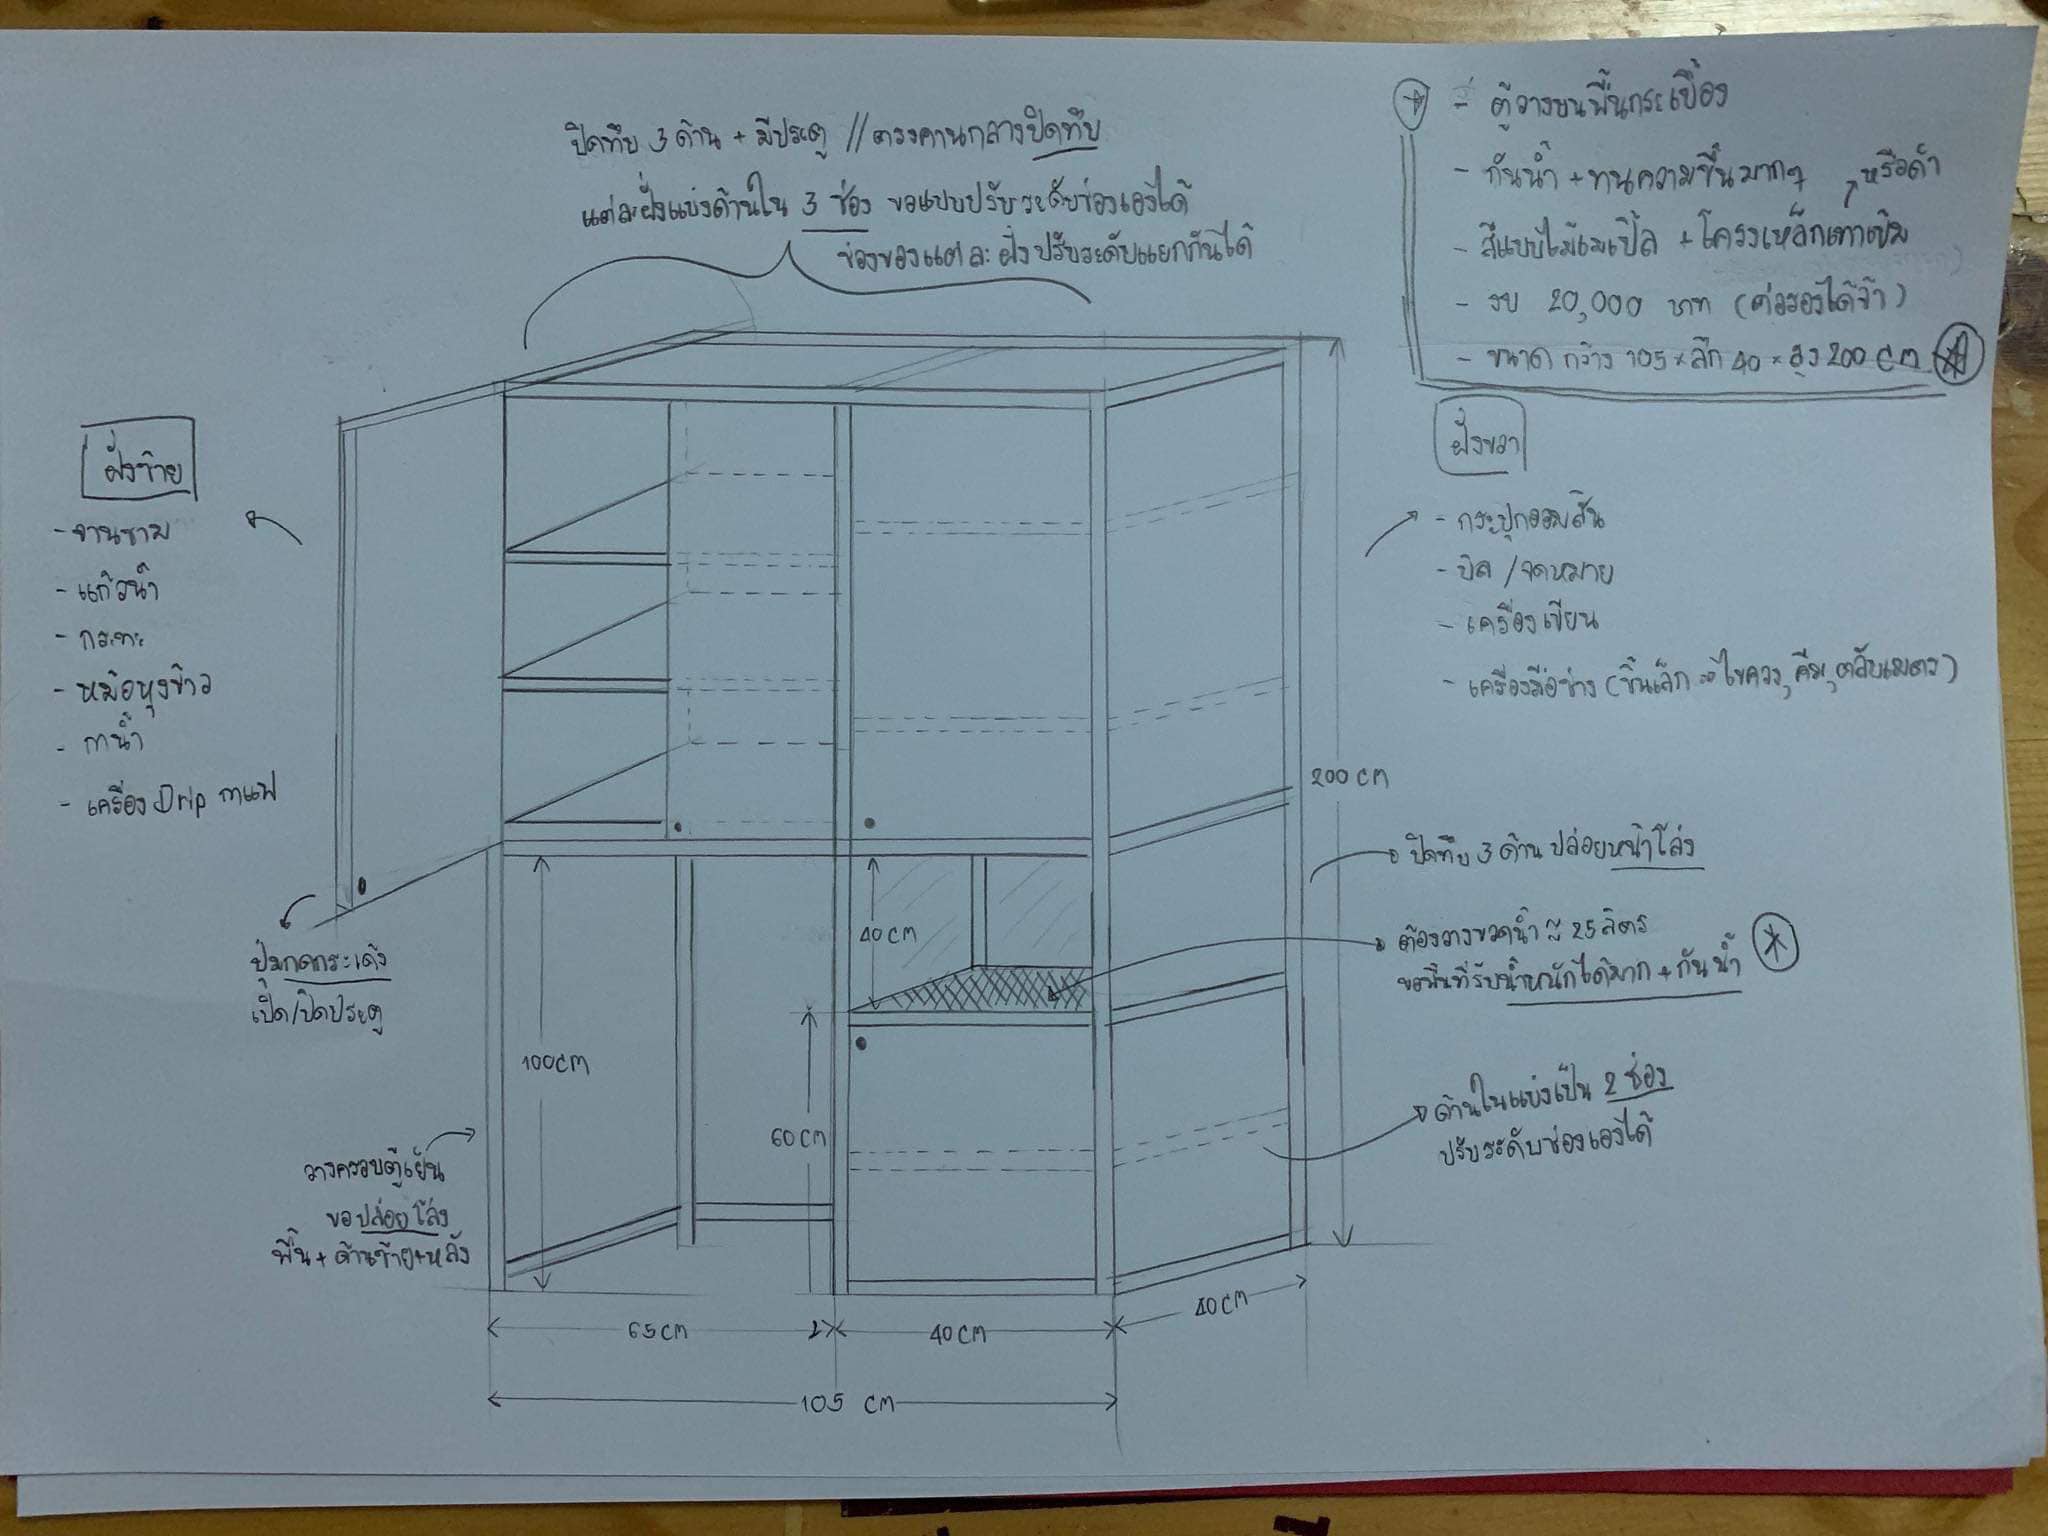 ปิดทึบ 3 ด้าน + มีประตู // ตรงคานกลางปิดทึบ
แต่ละฝั่งแบ่งด้านใน 3 ช่อง ขอแบบปรับระดับช่องเองได้
ช่องของแต่ละฝั่งปรับระดับแยกกันได้
- ตู้วางบนพื้นกระเบื้อง
- กันน้ำ + ทนความชื้นมากๆ
หรือดำ
- สีแบบไม้เมเปิ้ล + โครงเหล็กเทาเข้ม
- งบ 20,000 บาท (ต่อรองได้จ้า)
- ขนาด กว้าง 105 × ลึก 40 × สูง 200 cm
ฝั่งซ้าย
- จานชาม
- แก้วน้ำ
- กระทะ
- หม้อหุงข้าว
- กาน้ำ
- เครื่อง Drip กาแฟ
ฝั่งขวา
- กระปุกออมสิน
- บิล / จดหมาย
- เครื่องเขียน
- เครื่องมือช่าง (ชิ้นเล็ก → ไขควง, คีม, ตลับเมตร)
200 cm
ปิดทึบ 3 ด้าน ปล่อยหน้าโล่ง
40 cm
ต้องวางขวดน้ำ ≈ 25 ลิตร
ขอพื้นที่รับน้ำหนักได้มาก + กันน้ำ
ปุ่มกดกระเด้ง
เปิด/ปิดประตู
100 cm
60 cm
ด้านในแบ่งเป็น 2 ช่อง
ปรับระดับช่องเองได้
วางครอบตู้เย็น
ขอปล่อยโล่ง
พื้น + ด้านซ้าย + หลัง
65 cm
40 cm
40 cm
105 cm